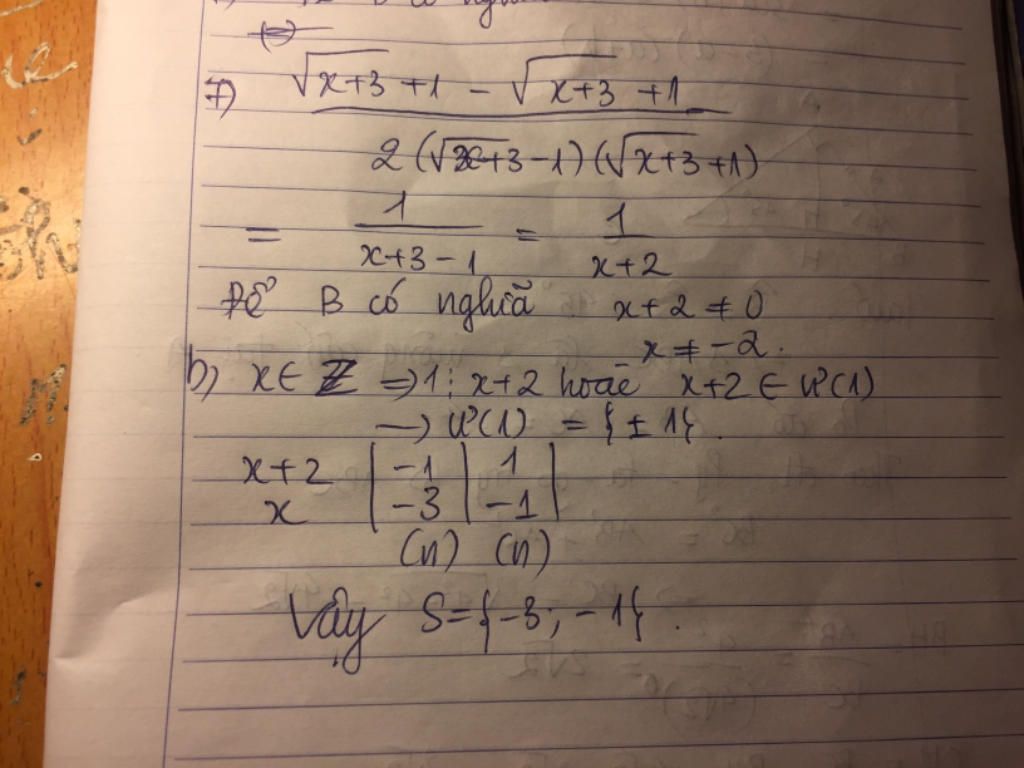 B có
7) √(x+3) + 1 - √(x+3 + 1)
2(√(x+3) - 1)(√(x+3) + 1)
= 1/(x+3-1) = 1/(x+2)
Để B có nghiã x+2 ≠ 0
x ≠ -2.
b) x ∈ Z ⇒ 1 ⋮ x+2 hoăc x+2 ∈ Ư(1)
→ Ư(1) = {± 1}.
x+2 | -1 | 1 |
x | -3 | -1 |
(n) (n)
Vậy S = {-3; -1}.